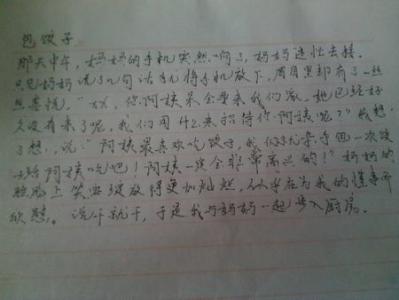 包饺子
那天中午,妈妈的手机突然响了,妈妈连忙去接。
只见妈妈说了几句话就将手机放下,眉目里却有了一丝
喜悦,"xx,你阿姨会要来我们家,她已经好
久没有来了呢,我们用什么来招待你阿姨呢?"我想
了想,说"阿姨最喜欢吃饺子,我们就亲手包一次饺
子给阿姨吃吧!阿姨一定会非常高兴的!"妈妈的
脸上笑容绽放得更加灿烂,似乎在为我的懂事而
欣慰。说干就干,于是我与妈妈一起步入厨房。